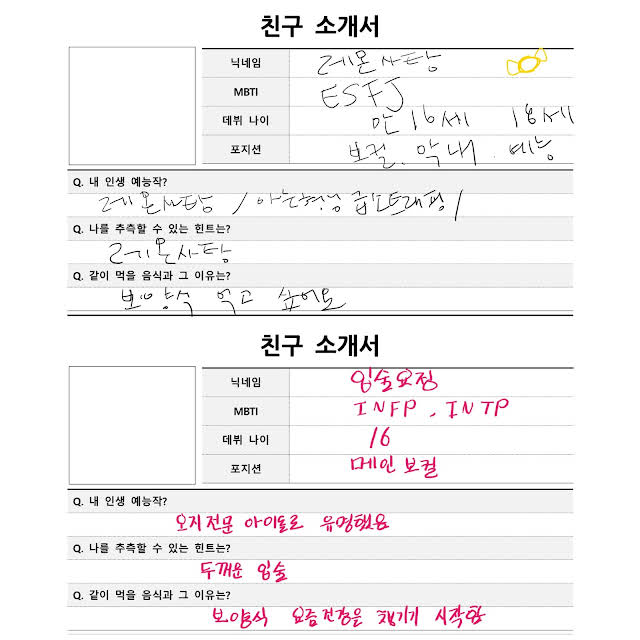 친구 소개서
닉네임 레몬사탕
MBTI ESFJ
데뷔 나이 만 16세 18세
포지션 보컬. 막내. 예능
Q. 내 인생 예능작?
레몬사탕 / 아는형님
Q. 나를 추측할 수 있는 힌트는?
레몬사탕
Q. 같이 먹을 음식과 그 이유는?
보양식 먹고 싶어요
친구 소개서
닉네임 입술요정
MBTI INFP. INTP
데뷔 나이 16
포지션 메인보컬
Q. 내 인생 예능작?
오지전문 아이돌로 유명했음
Q. 나를 추측할 수 있는 힌트는?
두꺼운 입술
Q. 같이 먹을 음식과 그 이유는?
보양식 요즘 건강을 챙기기 시작함